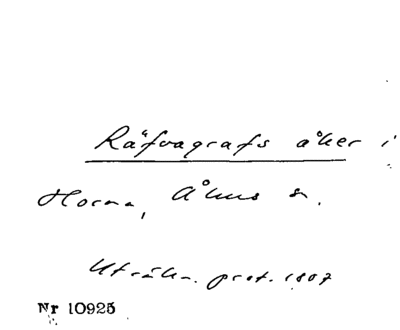 Räfvagrafs åker i
Horna, Åhus sn.
Uträkn. prot. 1807
Nr 10925